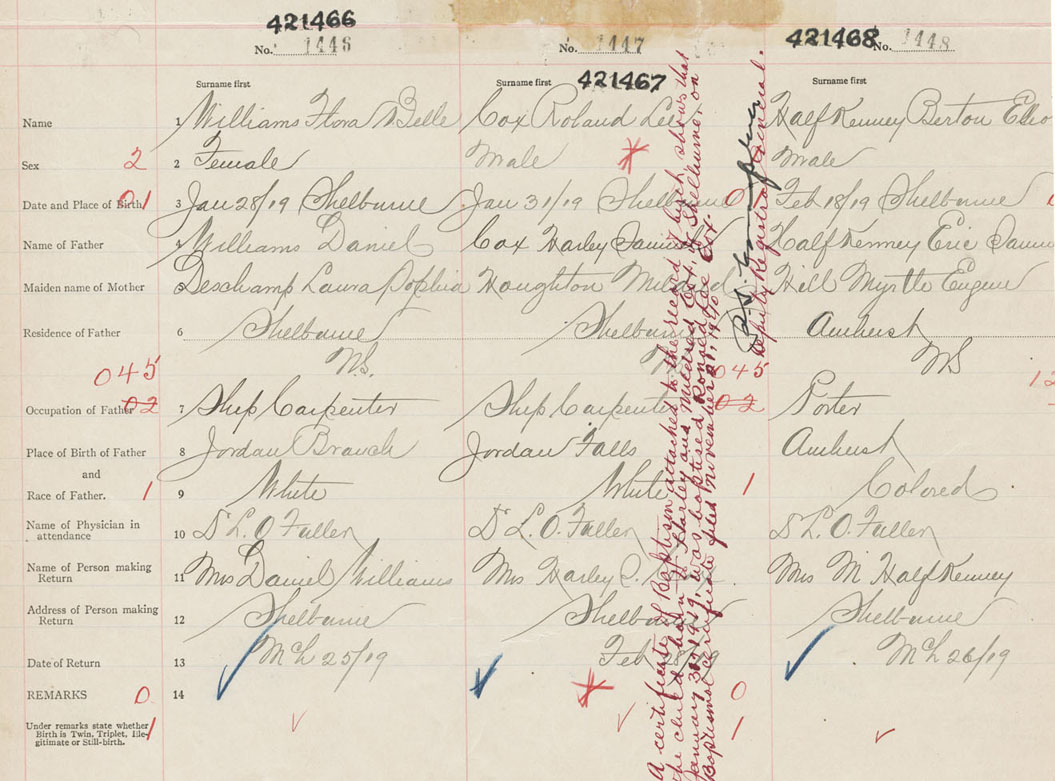 421466
No. 1446
No. 1447
421468 No. 1448
Surname first
Surname first 421467
Surname first
Name 1 Williams Flora Belle Cox Roland Lee Half Kenney Berton
Sex 2 2 Female Male Male
Date and Place of Birth 01 3 Jan 28/19 Shelburne Jan 31/19 Shelburne 0 Feb 18/19 Shelburne 1
Name of Father 4 Williams Daniel Cox Harley Half Kenney Eric
Maiden name of Mother 5 Deschamp Laura Sophia Houghton Mildred Hill Myrtle Eugene
Residence of Father 6 Shelburne Shelburne Amherst
N.S. NS
045 045 12
Occupation of Father 02 7 Ship Carpenter Ship Carpenter 02 Porter
Place of Birth of Father 8 Jordan Branch Jordan Falls Amherst
and
Race of Father. 1 9 White White 1 Colored
Name of Physician in
attendance 10 L. O. Fuller L. O. Fuller L. O. Fuller
Name of Person making
Return 11 Mrs Daniel Williams Mrs Harley C. Mrs M Half Kenney
Address of Person making
Return 12 Shelburne Shelburne Shelburne
Date of Return 13 Mch 25/19 Feb 28/19 Mch 26/19
REMARKS 0 14 0
Under remarks state whether
Birth is Twin, Triplet, Ille-
gitimate or Still-birth. 1 1
A certificate of Baptism attached to the record of birth shows that
the child born to Harley and Mildred Cox, of Shelburne, on
January 30, 1919, was baptised Ronald Lee Cox.
Baptismal Certificate filed November 21, 1940
Deputy Registrar General.